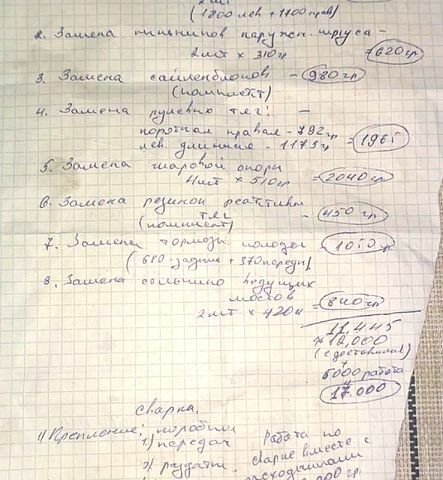 (1800 лев + 1100 прав)
2. Замена пыльников наружн. шруса -
2 шт х 310 гр = 620 гр
3. Замена сайлентблоков - 980 гр
(комплект)
4. Замена рулевых тяг: -
короткая правая - 792 гр
лев. длинная - 1173 гр = 1965
5. Замена шаровой опоры
4 шт х 510 гр = 2040 гр
6. Замена резинок реактивн
тяг - 450 гр
(комплект)
7. Замена тормозн. колодок 1050 гр
(680 задние + 370 передн)
8. Замена сальника ведущих
мостов
2 шт х 420 = 840 гр
11.445
≈ 12,000
(с доставкой)
+
5000 работа
17.000
Сварка.
1) Крепление: коробки
1) передач
2) раздатк.
Работа по
сварке вместе с
расходниками